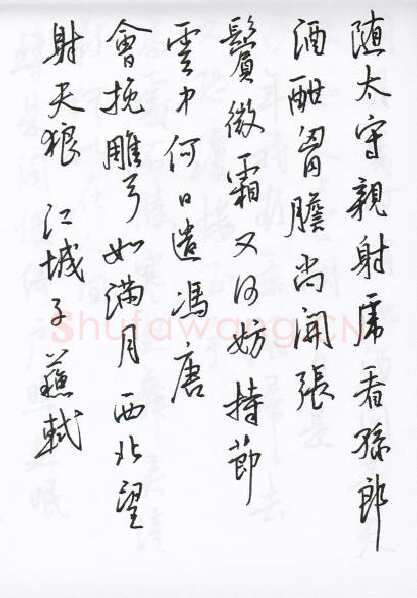 随太守親射虎看孫郎
酒酣胷膽尚開張
鬢微霜又何妨持節
雲中何日遣馮唐
會挽雕弓如滿月西北望
射天狼 江城子 蘇軾
Shufawang.CN